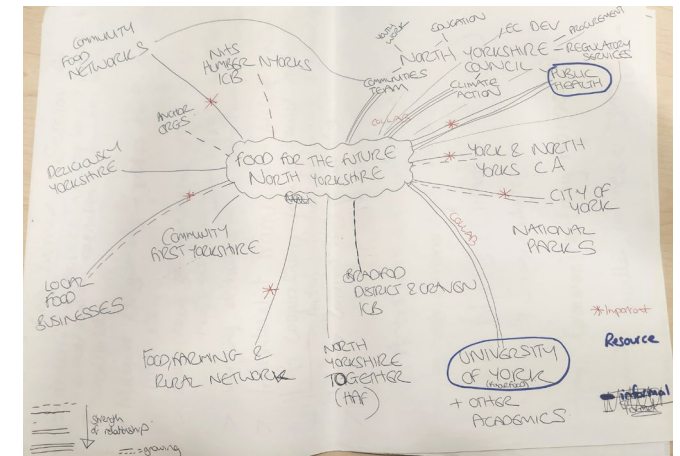 COMMUNITY
FOOD
NETWORKS
NHS
HUMBER NYORKS
ICB
ANCHOR
ORGS
YOUTH
WORK
EDUCATION
EC DEV
PROCUREMENT
NORTH YORKSHIRE
COUNCIL
REGULATORY
SERVICES
COMMUNITIES
TEAM
CLIMATE
ACTION
PUBLIC
HEALTH
COLLAB
DELICIOUSLY
YORKSHIRE
FOOD FOR THE FUTURE
NORTH YORKSHIRE
YORK & NORTH
YORKS CA
CITY OF
YORK
NATIONAL
PARKS
COLLAB
COMMUNITY
FIRST YORKSHIRE
LOCAL
FOOD
BUSINESSES
BRADFOD
DISTRICT & CRAVEN
ICB
FOOD, FARMING &
RURAL NETWORK
NORTH
YORKSHIRE
TOGETHER
(HAF)
UNIVERSITY
OF YORK
+ OTHER
ACADEMICS
*Important
Resource
informal
strength
of relationship
= growing